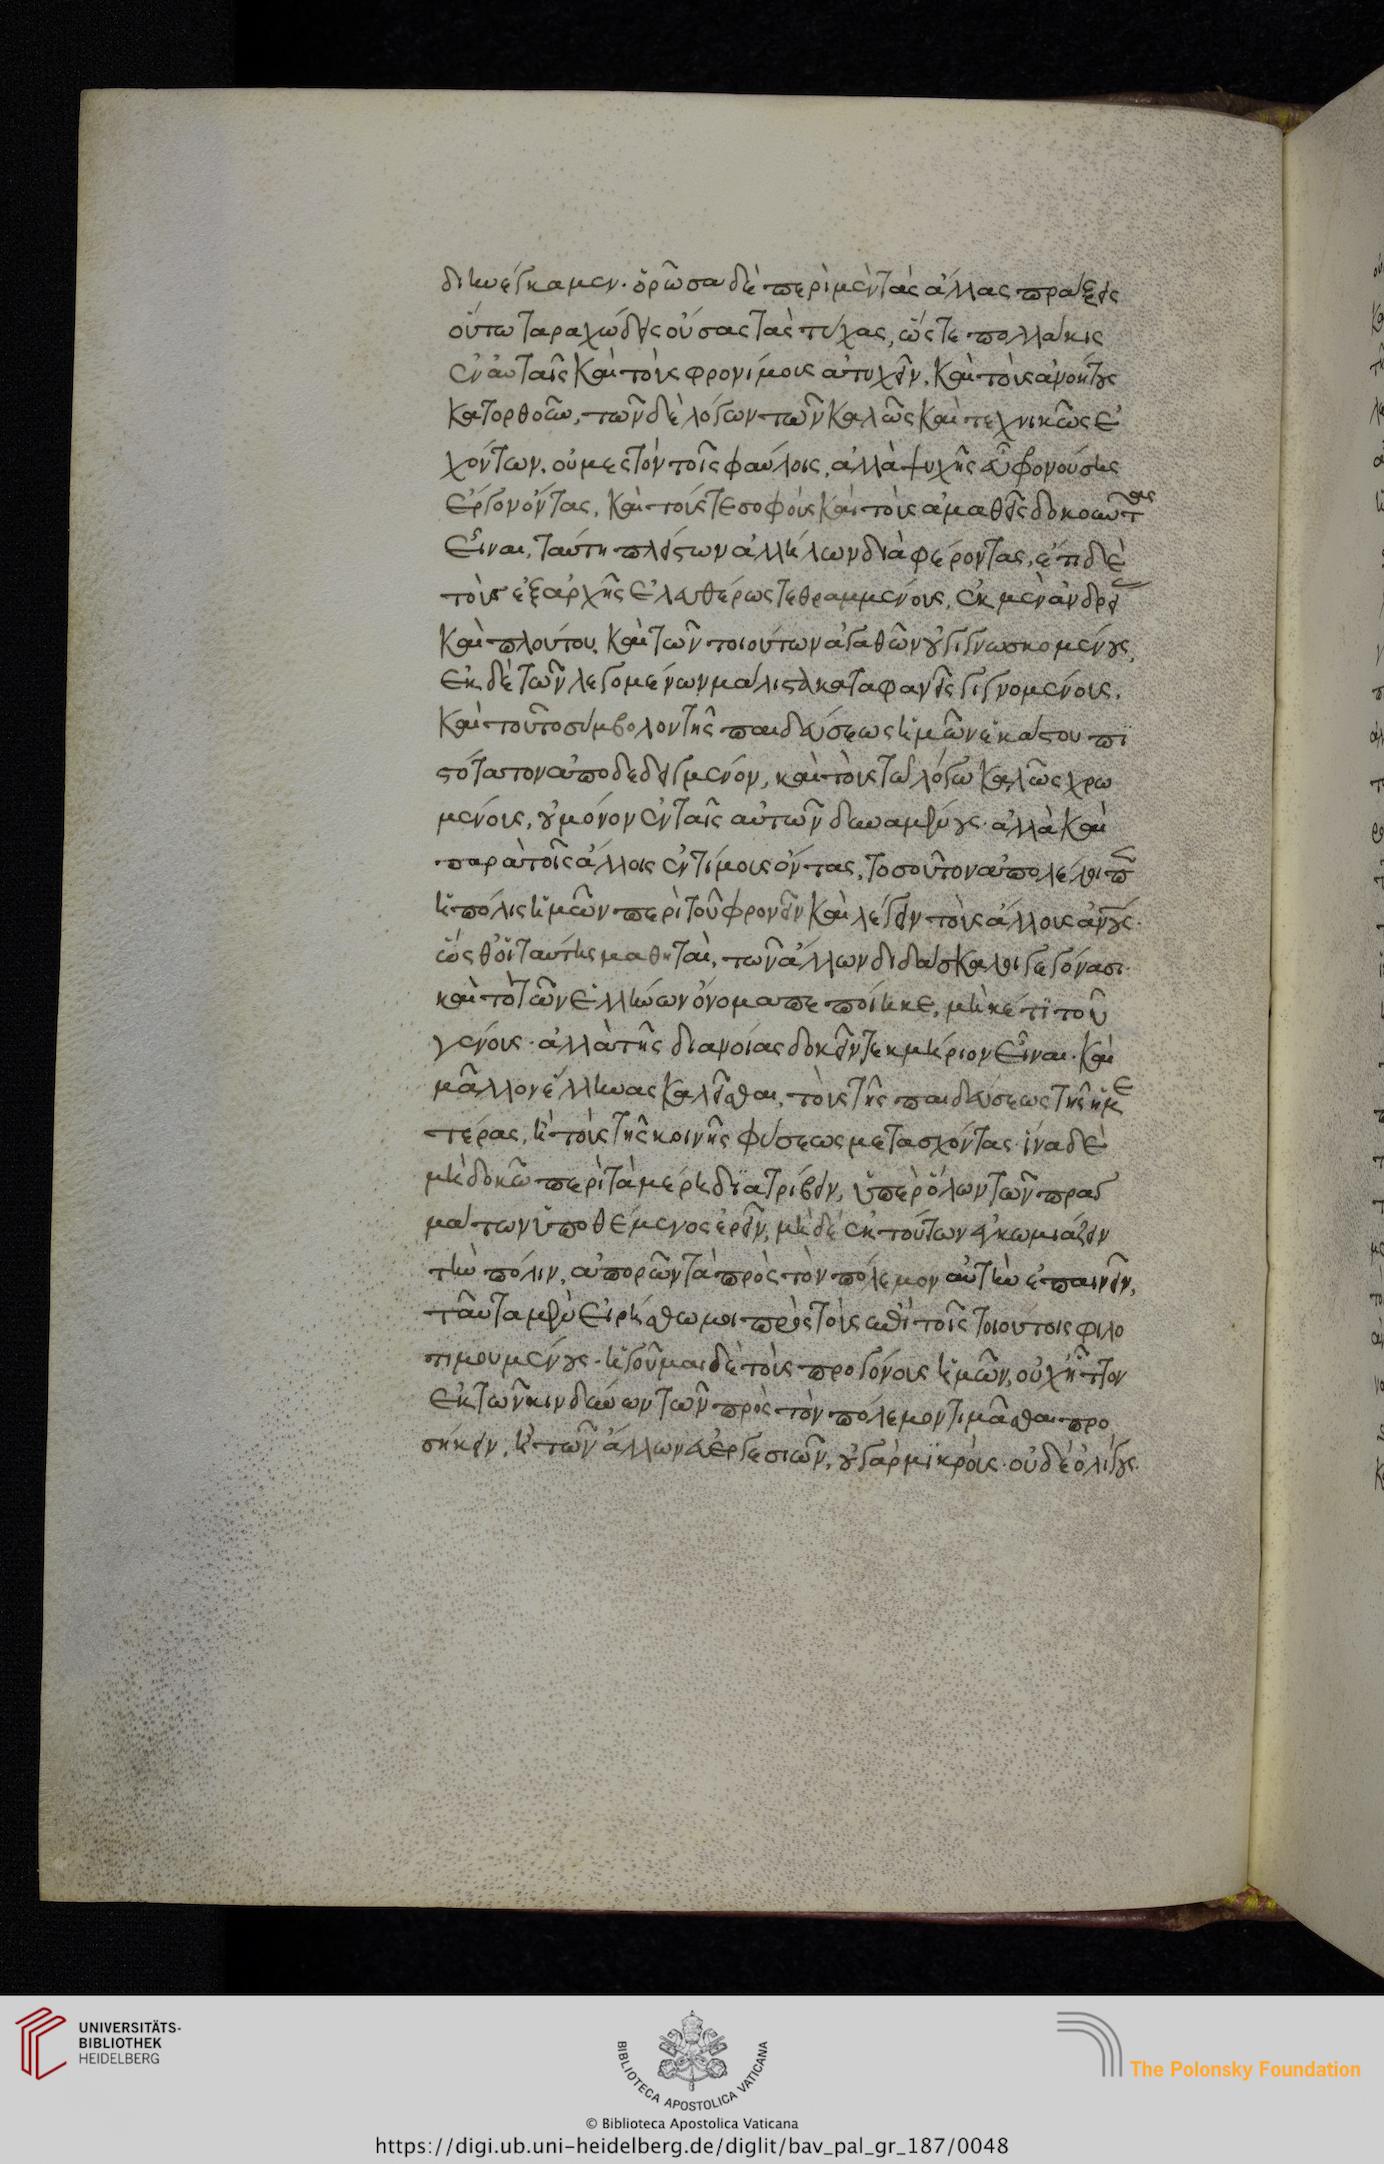 διηνέγκαμεν. ὁρῶσα δὲ περὶ μὲν τὰς ἄλλας πράξεις
οὕτω ταραχώδεις οὔσας τὰς τύχας, ὥστε πολλάκις
ἐν αὐταῖς καὶ τοὺς φρονίμους ἀτυχεῖν, καὶ τοὺς ἀνοήτους
κατορθοῦν, τῶν δὲ λόγων τῶν καλῶς καὶ τεχνικῶς ἐ
χόντων, οὐ μεστὸν τοῖς φαύλοις, ἀλλὰ ψυχῆς εὖ φρονούσης
ἔργον ὄντας, καὶ τούς τε σοφοὺς καὶ τοὺς ἀμαθεῖς δοκοῦντας
εἶναι, ταύτῃ πλεῖστων ἀλλήλων διαφέροντας, ἔτι δὲ
τοὺς ἐξ ἀρχῆς ἐλευθέρως τεθραμμένους, ἐκ μὲν ἀνδρεί
καὶ πλούτου, καὶ τῶν τοιούτων ἀγαθῶν οὐ γιγνωσκομένους,
ἐκ δὲ τῶν λεγομένων μάλιστα καταφανεῖς γιγνομένους.
καὶ τοῦτο σύμβολον τῆς παιδεύσεως ἡμῶν ἑκάστου πι
στότατον ἀποδεδειγμένον, καὶ τοὺς τῷ λόγῳ καλῶς χρω
μένους, οὐ μόνον ἐν ταῖς αὑτῶν δυναμένους. ἀλλὰ καὶ
παρὰ τοῖς ἄλλοις ἐντίμους ὄντας, τοσοῦτον ἀπολέλοιπεν
ἡ πόλις ἡμῶν περὶ τοῦ φρονεῖν καὶ λέγειν τοὺς ἄλλους ἀνους.
ὥσθ' οἱ ταύτης μαθηταὶ, τῶν ἄλλων διδάσκαλοι γεγόνασι.
καὶ τὸ τῶν ἑλλήνων ὄνομα πεποίηκε, μηκέτι τοῦ
γένους. ἀλλὰ τῆς διανοίας δοκεῖν τεκμήριον εἶναι. καὶ
μᾶλλον ἕλληνας καλεῖσθαι, τοὺς τῆς παιδεύσεως τῆς ἡμε
τέρας, ἢ τοὺς τῆς κοινῆς φύσεως μετασχόντας. ἵνα δὲ
μὴ δοκῶ περὶ τὰ μέρη διατρίβειν, ὑπὲρ ὅλων τῶν πραγ
μάτων ὑποθέμενος ἐρεῖν, μηδὲ ἐκ τούτων ἐγκωμιάζειν
τὴν πόλιν, ἀπορῶν τὰ πρὸς τὸν πόλεμον αὐτὴν ἐπαινεῖν,
ταῦτα μὲν εἰρήσθω μοι πρὸς τοὺς ἐπὶ τοῖς τοιούτοις φιλο
τιμουμένους. ἡγοῦμαι δὲ τοὺς προγόνους ἡμῶν, οὐχ ἧττον
ἐκ τῶν κινδύνων τῶν πρὸς τὸν πόλεμον τιμᾶσθαι προ
σήκειν, ἢ τῶν ἄλλων εὐεργεσιῶν, οὐ γὰρ μικροὺς. οὐδὲ ὀλίγους.
UNIVERSITÄTS-
BIBLIOTHEK
HEIDELBERG
BIBLIOTECA APOSTOLICA VATICANA
The Polonsky Foundation
© Biblioteca Apostolica Vaticana
https://digi.ub.uni-heidelberg.de/diglit/bav_pal_gr_187/0048